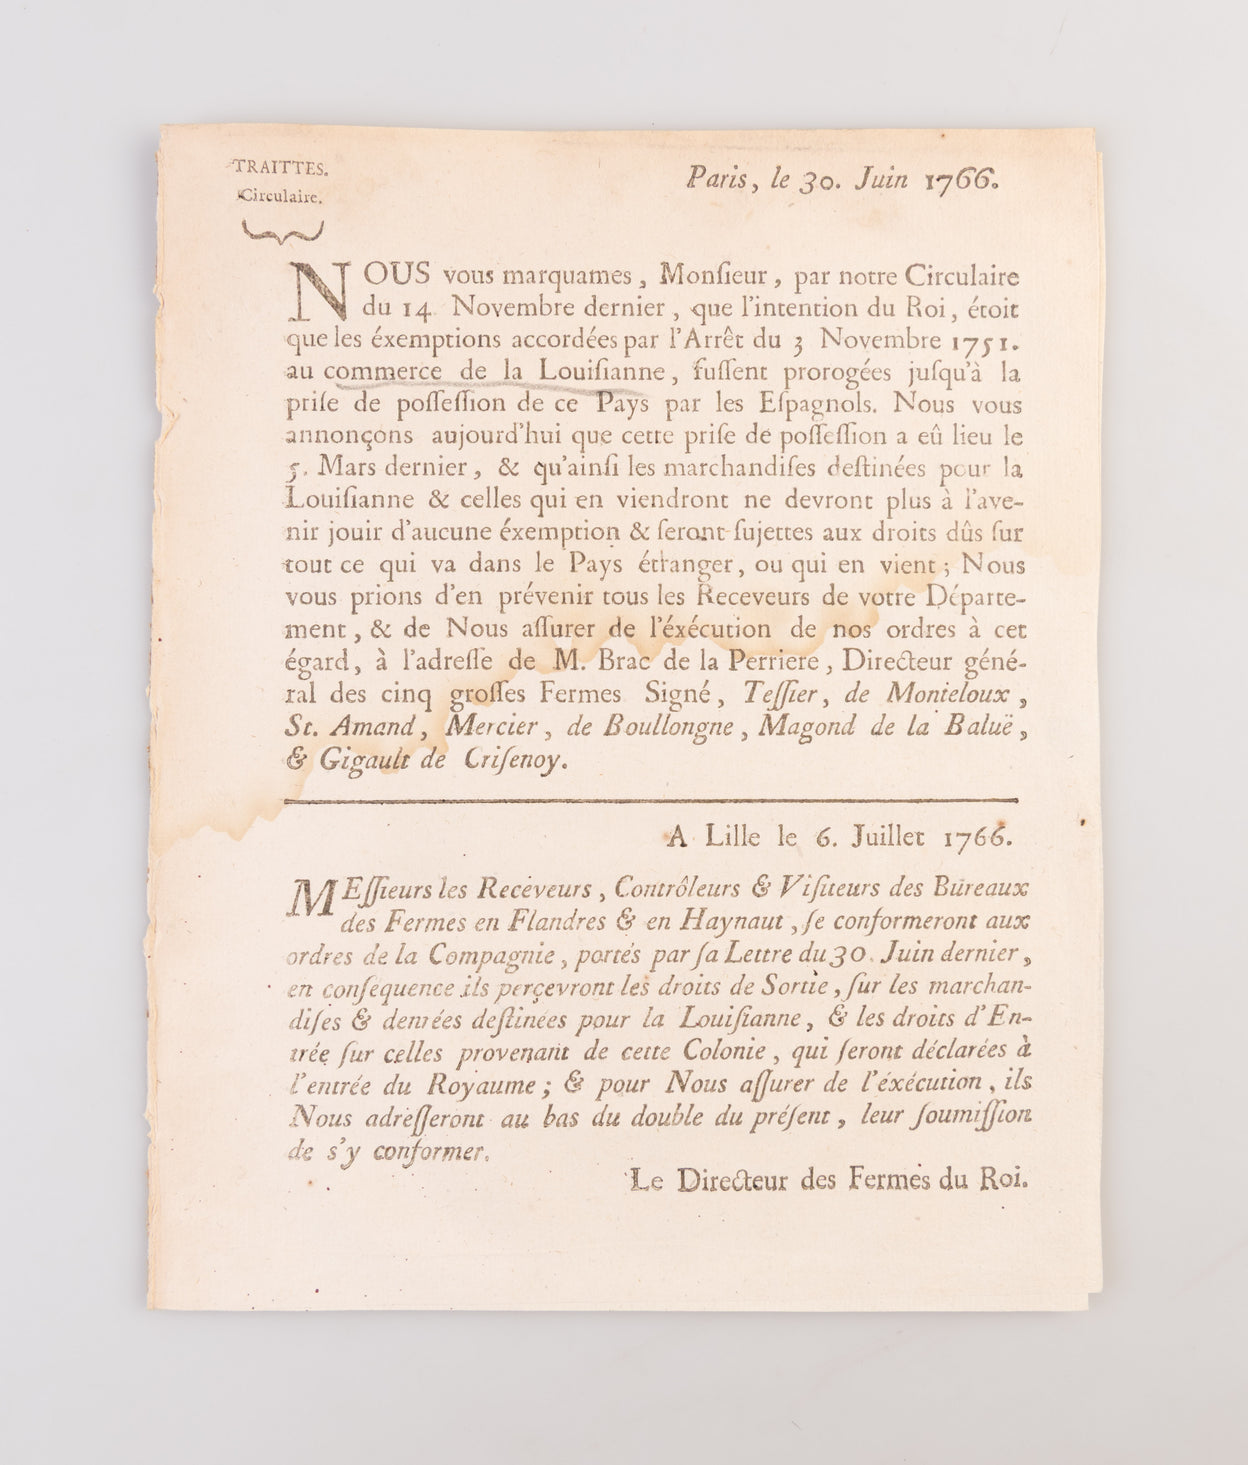 TRAITTES.
Circulaire.
Paris, le 30. Juin 1766.
NOUS vous marquames, Monſieur, par notre Circulaire
du 14 Novembre dernier, que l'intention du Roi, étoit
que les éxemptions accordées par l'Arrêt du 3 Novembre 1751.
au commerce de la Louiſianne, fuſſent prorogées juſqu'à la
priſe de poſſeſſion de ce Pays par les Eſpagnols. Nous vous
annonçons aujourd'hui que cette priſe de poſſeſſion a eû lieu le
5. Mars dernier, & qu'ainſi les marchandiſes deſtinées pour la
Louiſianne & celles qui en viendront ne devront plus à l'ave-
nir jouir d'aucune éxemption & ſeront ſujettes aux droits dûs ſur
tout ce qui va dans le Pays étranger, ou qui en vient; Nous
vous prions d'en prévenir tous les Receveurs de votre Départe-
ment, & de Nous aſſurer de l'éxécution de nos ordres à cet
égard, à l'adreſſe de M. Brac de la Perriere, Directeur géné-
ral des cinq groſſes Fermes Signé, Teſſier, de Monteloux,
St. Amand, Mercier, de Boullongne, Magond de la Baluë,
& Gigault de Criſenoy.
A Lille le 6. Juillet 1766.
MEſſieurs les Receveurs, Contrôleurs & Viſiteurs des Bureaux
des Fermes en Flandres & en Haynaut, ſe conformeront aux
ordres de la Compagnie, portés par ſa Lettre du 30. Juin dernier,
en conſéquence ils perçevront les droits de Sortie, ſur les marchan-
diſes & denrées deſtinées pour la Louiſianne, & les droits d'En-
trée ſur celles provenant de cette Colonie, qui ſeront déclarées à
l'entrée du Royaume; & pour Nous aſſurer de l'éxécution, ils
Nous adreſſeront au bas du double du préſent, leur ſoumiſſion
de s'y conformer.
Le Directeur des Fermes du Roi.